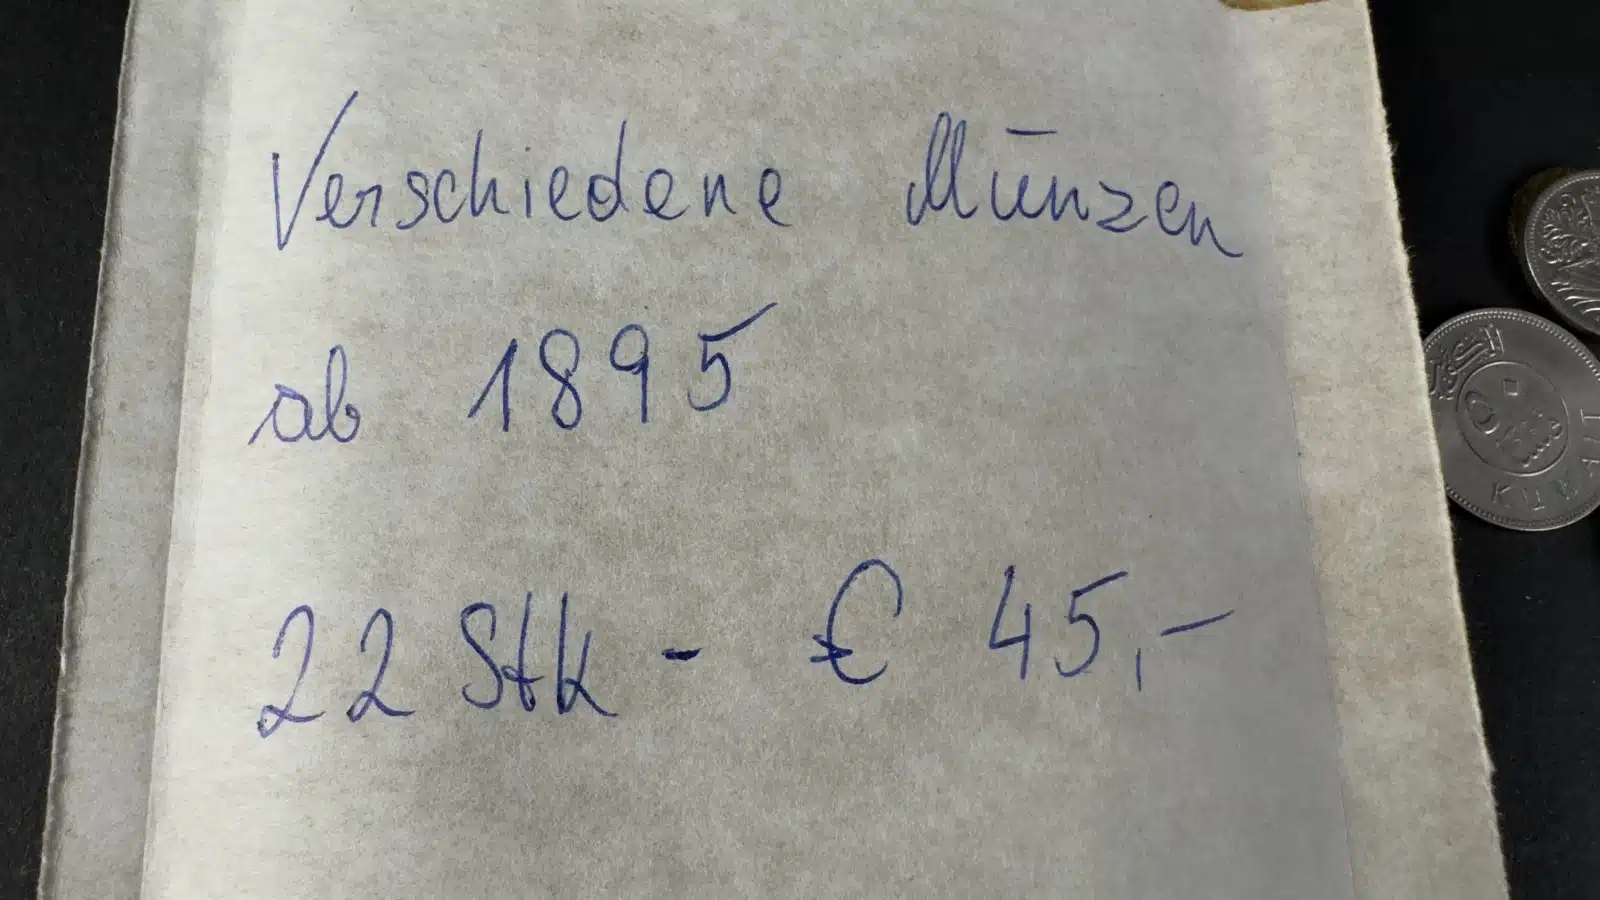 Verschiedene Münzen
ab 1895
22 Stk - € 45,-
KUWAIT